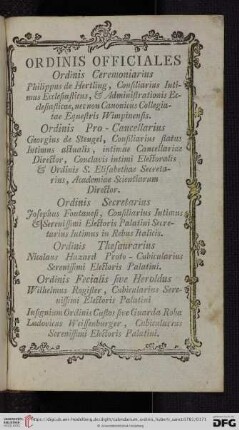 ORDINIS OFFICIALES
Ordinis Ceremoniarius
Philippus de Hertling, Consiliarius Inti-
mus Ecclesiasticus, & Administrationis Ec-
clesiasticae, nec non Canonicus Collegia-
tae Equestris Wimpinensis.
Ordinis Pro-Cancellarius
Georgius de Stengel, Consiliarius status
Intimus actualis, intimae Cancellariae
Director, Conclavis intimi Electoralis
& Ordinis S. Elisabethae Secreta-
rius, Academiae Scientiarum
Director.
Ordinis Secretarius
Josephus Fontanesi, Consiliarius Intimus
& Serenissimi Electoris Palatini Secre-
tarius Intimus in Rebus Italicis.
Ordinis Thesaurarius
Nicolaus Hazard Proto-Cubicularius
Serenissimi Electoris Palatini.
Ordinis Fecialis sive Heroldus
Wilhelmus Register, Cubicularius Sere-
nissimi Electoris Palatini
Insignium Ordinis Custos sive Guarda Roba
Ludovicus Weissenburger, Cubicularius
Serenissimi Electoris Palatini.
UNIVERSITÄTS-
BIBLIOTHEK
HEIDELBERG
DFG